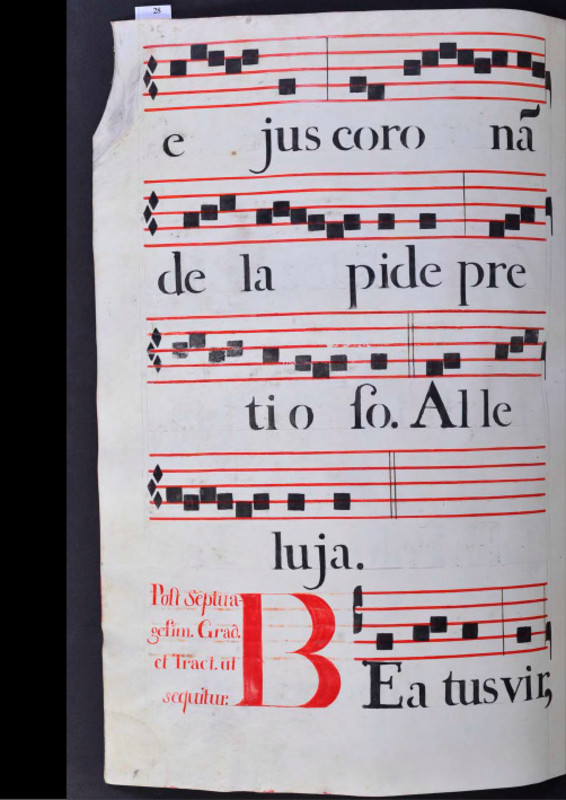 28
e jus coro nã
de la pide pre
ti o ſo. Al le
luja.
Poſt Septua-
geſim. Grad.
et Tract. ut
sequitur.
BEa tus vir,